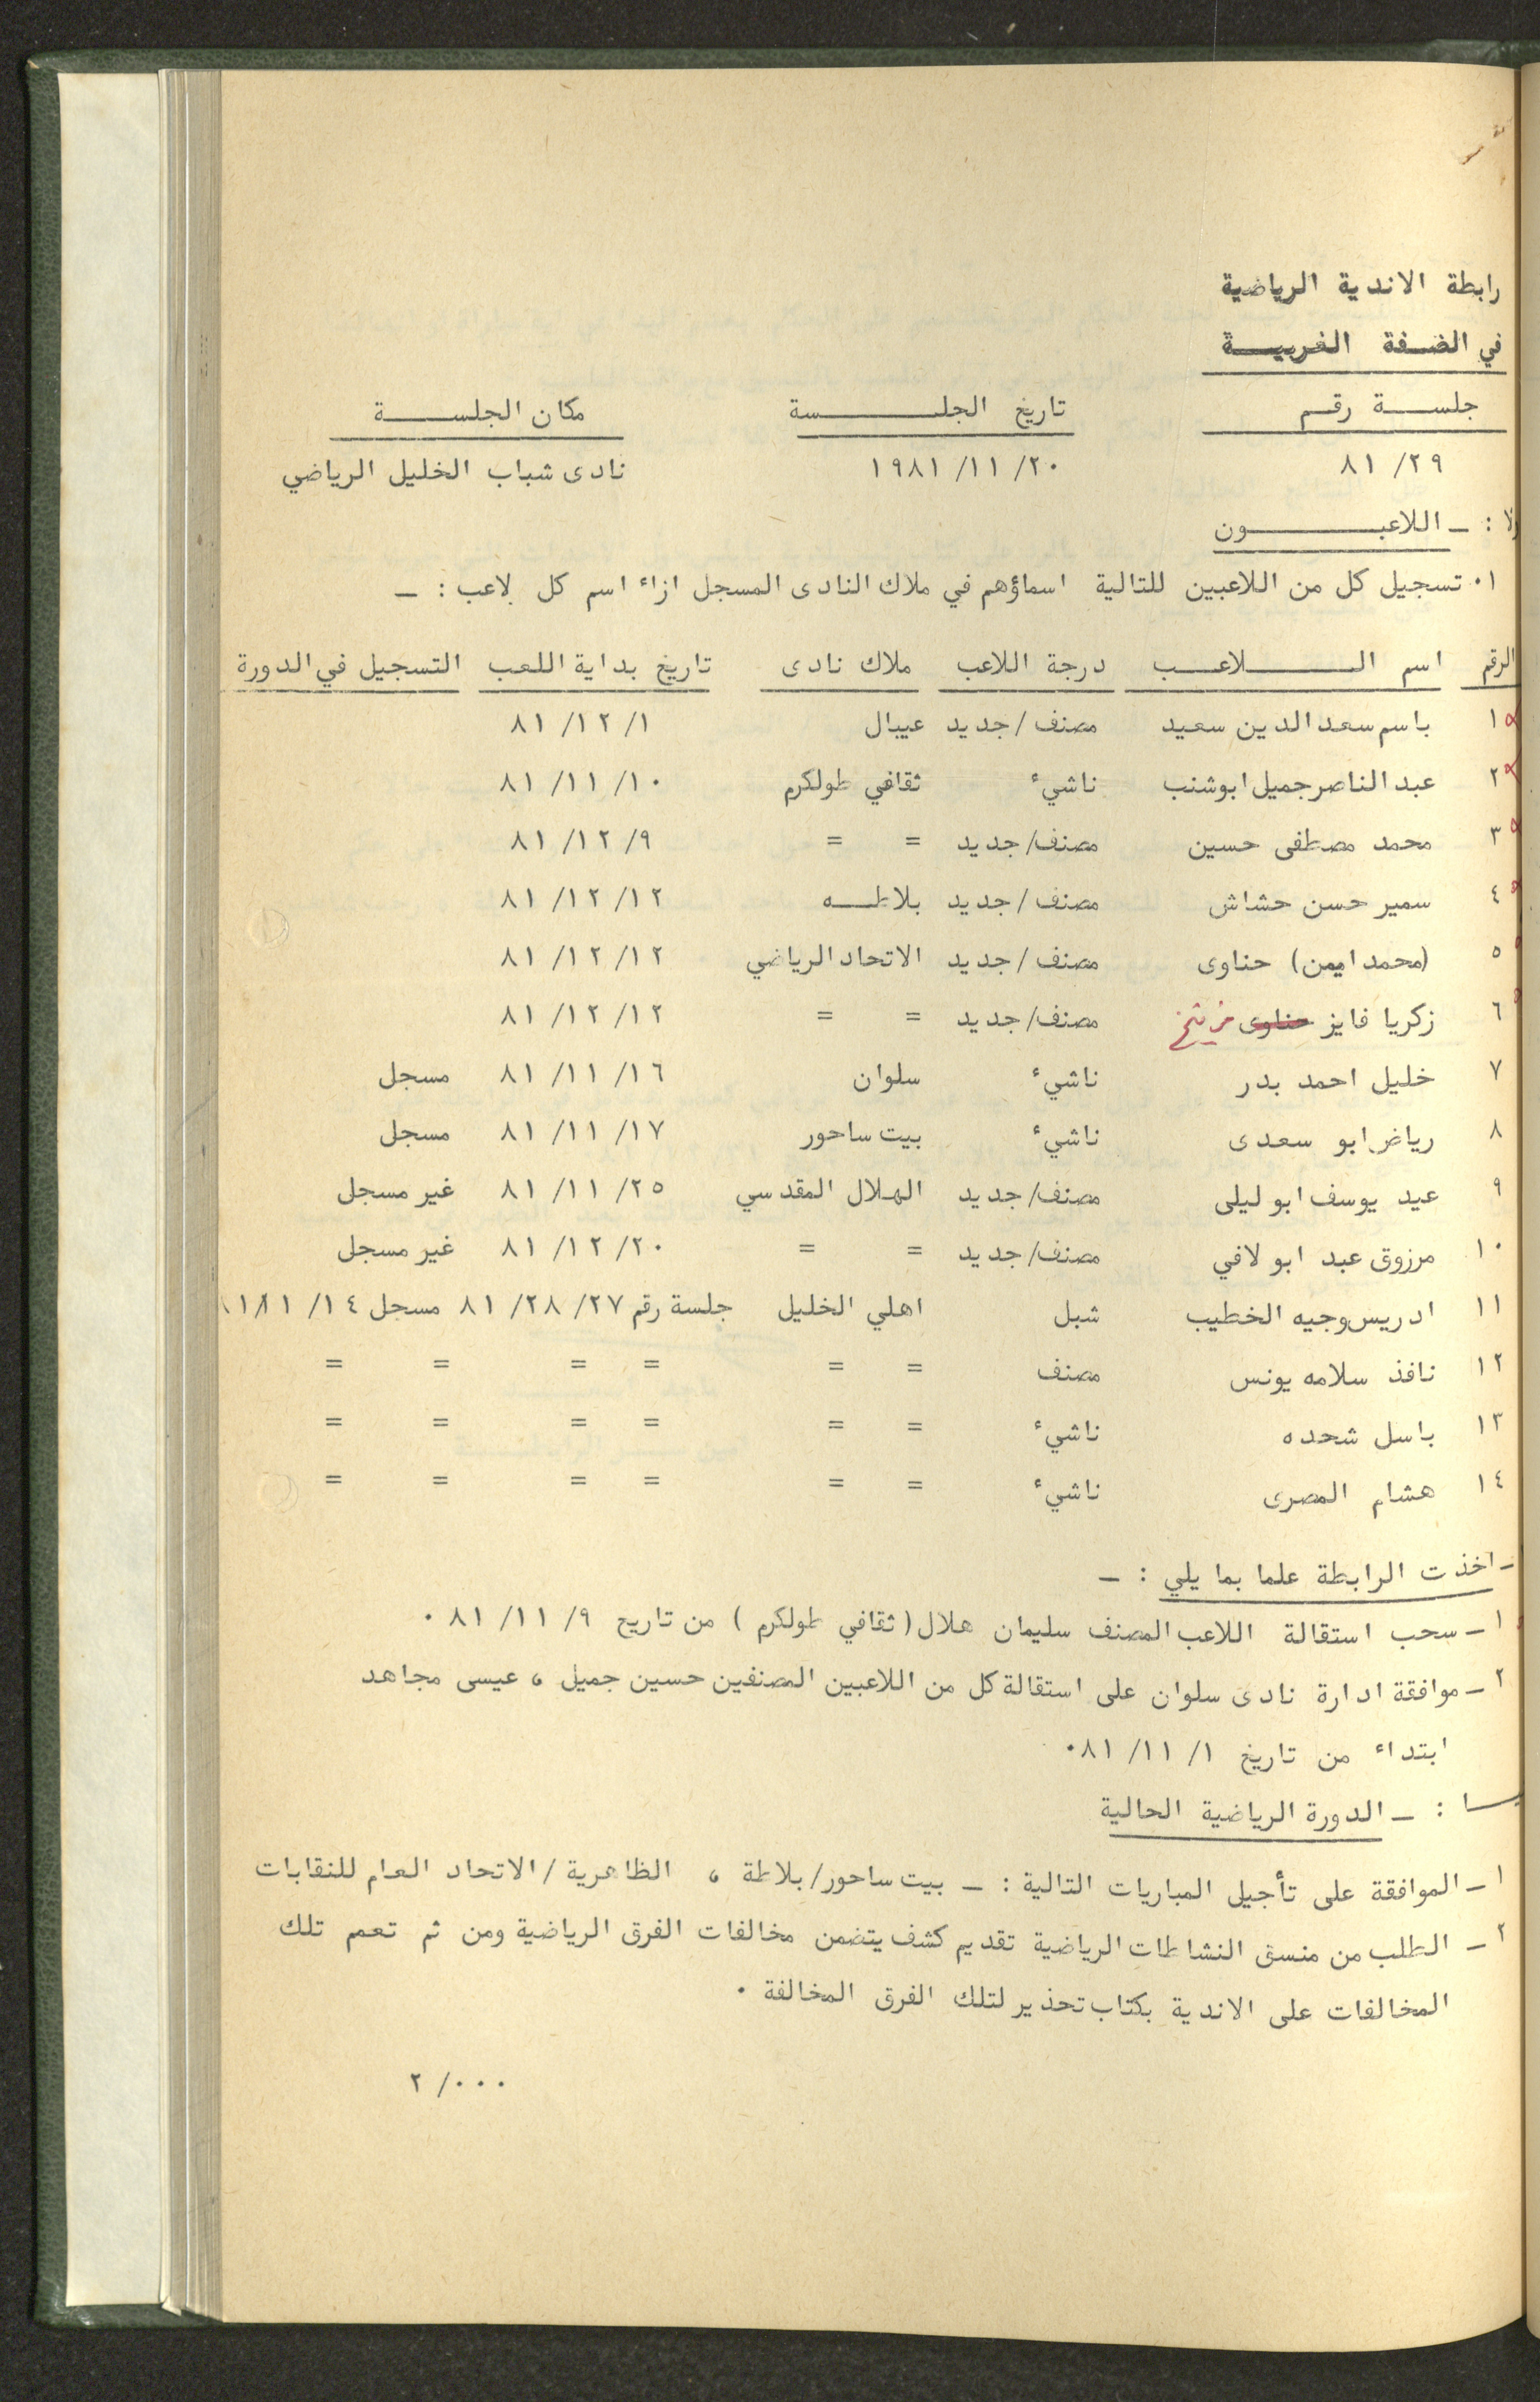 رابطة الاندية الرياضية
في الضفة الغربية
جلسة رقم تاريخ الجلسة مكان الجلسة
٨١ /٢٩ ١٩٨١ /١١ /٢٠ نادى شباب الخليل الرياضي
: ـ اللاعبون
٠١ تسجيل كل من اللاعبين للتالية اسماؤهم في ملاك النادى المسجل ازاء اسم كل لاعب : ـ
الرقم اسم اللاعب درجة اللاعب ملاك نادى تاريخ بداية اللعب التسجيل في الدورة
١ باسم سعد الدين سعيد مصنف / جديد عيبال ٨١ /١٢ /١
٢ عبد الناصر جميل ابوشنب ناشيء ثقافي طولكرم ٨١ /١١ /١٠
٣ محمد مصطفى حسين مصنف/ جديد = = ٨١ /١٢ /٩
٤ سمير حسن حشاش مصنف / جديد بلاطه ٨١ /١٢ /١٢
٥ (محمد ايمن) حناوى مصنف / جديد الاتحاد الرياضي ٨١ /١٢ /١٢
٦ زكريا فايز حناوى مصنف/ جديد = = ٨١ /١٢ /١٢
٧ خليل احمد بدر ناشيء سلوان ٨١ /١١ /١٦ مسجل
٨ رياض ابو سعدى ناشيء بيت ساحور ٨١ /١١ /١٧ مسجل
٩ عيد يوسف ابو ليلى مصنف/ جديد الهلال المقدسي ٨١ /١١ /٢٥ غير مسجل
١٠ مرزوق عبد ابو لافي مصنف/ جديد = = ٨١ /١٢ /٢٠ غير مسجل
١١ ادريس وجيه الخطيب شبل اهلي الخليل جلسة رقم ٢٧/ ٢٨/ ٨١ مسجل ١٤/
١٢ نافذ سلامه يونس مصنف = = = = = =
١٣ باسل شحده ناشيء = = = = = =
١٤ هشام المصرى ناشيء = = = = = =
ـ اخذت الرابطة علما بما يلي : ـ
١ـ سحب استقالة اللاعب المصنف سليمان هلال ( ثقافي طولكرم ) من تاريخ ٩/ ١١/ ٨١ ٠
٢ـ موافقة ادارة نادى سلوان على استقالة كل من اللاعبين المصنفين حسين جميل ، عيسى مجاهد
ابتداء من تاريخ ١/ ١١/ ٨١٠
: ـ الدورة الرياضية الحالية
١ـ الموافقة على تأجيل المباريات التالية : ـ بيت ساحور/ بلاطة ، الظاهرية / الاتحاد العام للنقابات
٢ـ الطلب من منسق النشاطات الرياضية تقديم كشف يتضمن مخالفات الفرق الرياضية ومن ثم تعمم تلك
المخالفات على الاندية بكتاب تحذير لتلك الفرق المخالفة ٠
٢ /٠٠٠